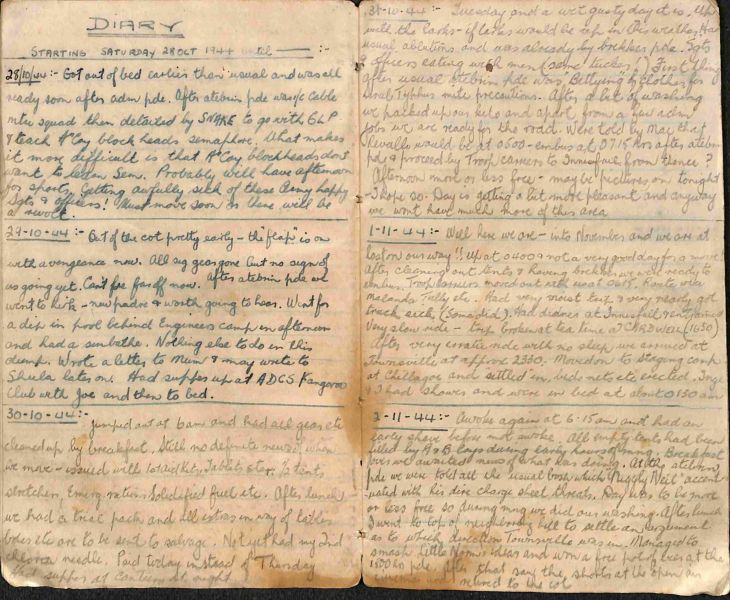 DIARY
STARTING SATURDAY 28 OCT 1944 until —— :-
28/10/44:- Got out of bed earlier than usual and was all
ready soon after adm pde. After atebrin pde was i/c Cable
mtce squad then detailed by SNAKE to go with G L P
& teach A Coy block heads semaphore. What makes
it more difficult is that A Coy blockheads don't
want to learn Sem. Probably will have afternoon
for sports, getting awfully sick of these Army happy
Sgts & officers! Must move soon or there will be
a revolt.
29-10-44:- Out of the cot pretty early - the "flap" is on
with a vengeance now. All sig gear gone but no sign of
us going yet. Can't be far off now. After atebrin pde we
went to kirk - new padre & worth going to hear. Went for
a dip in pool behind Engineers camp in afternoon
and had a sunbathe. Nothing else to do in this
dump. Wrote a letter to Mum & may write to
Shula later on. Had supper up at ADCS Kangaroo
Club with Joe and then to bed.
30-10-44:- Jumped out at 6am and had all gear etc
cleaned up by breakfast. Still no definite news of when
we move - issued with tablets etc. 1/2 tents
stretchers, Emerg rations Solidified fuel etc. After lunch
we had a trial pack and all extras in way of tables
boxes etc are to be sent to salvage. Not yet had my 2nd
cholera needle. Paid today instead of Thursday
supper at Canteen at night.
31-10-44:- Tuesday and a wet gusty day it is. Up
with the larks - if larks would be up in this weather. Had
usual ablutions and was already by breakfast pde. Sgts
& officers eating with men (same tucker!) First thing
after usual atebrin pde was 'Betlying' clothes for
Scrub Typhus mite precautions. After a bit of washing
we packed up our kits and apart from a few adm
jobs we are ready for the road. Were told by Mac that
Revalle would be at 0500 - embus at 0715 hrs after atebrin
pde & proceed by Troop carriers to Innisfail from thence ?
Afternoon more or less free - maybe pictures on tonight
- I hope so. Day is getting a bit more pleasant and anyway
we wont have much more of this area
1-11-44:- Well here we are - into November and we are at
last on our way!! Up at 0400 & not a very good day for a move!
After cleaning out tents & having brekker we were ready to
embus. Troop carriers moved out at 0615. Route via
Malanda Tully etc. Had very moist trip & very nearly got
truck sick, (Some did). Had dinner at Innisfail & entrained
Very slow ride - trip broken at tea time at CARDWELL (1630)
After very erratic ride with no sleep we arrived at
Townsville at approx 2330. Moved on to Staging camp
at Chillagoe and settled in, beds nets etc erected.
& I had showers and were in bed at about 0150 am
2-11-44:- Awoke again at 6.15 am and had an
early shave before most awoke. All empty tents had been
filled by A & B Coys during early hours of mng. Breakfast
over we awaited news of what was doing. At the atebrin
pde we were told all the usual bosh which 'Puggly Neil' accent-
uated with his dire charge sheet threats. Day was to be more
or less free so during mng we did our washing. After lunch
I went to top of neighboring hill to settle an argument
as to which direction Townsville was in. Managed to
smash Little Norm's ideas and won a free of at the
1500 hrs pde. After that saw the shorts at the open air
cinema and retired to the cot